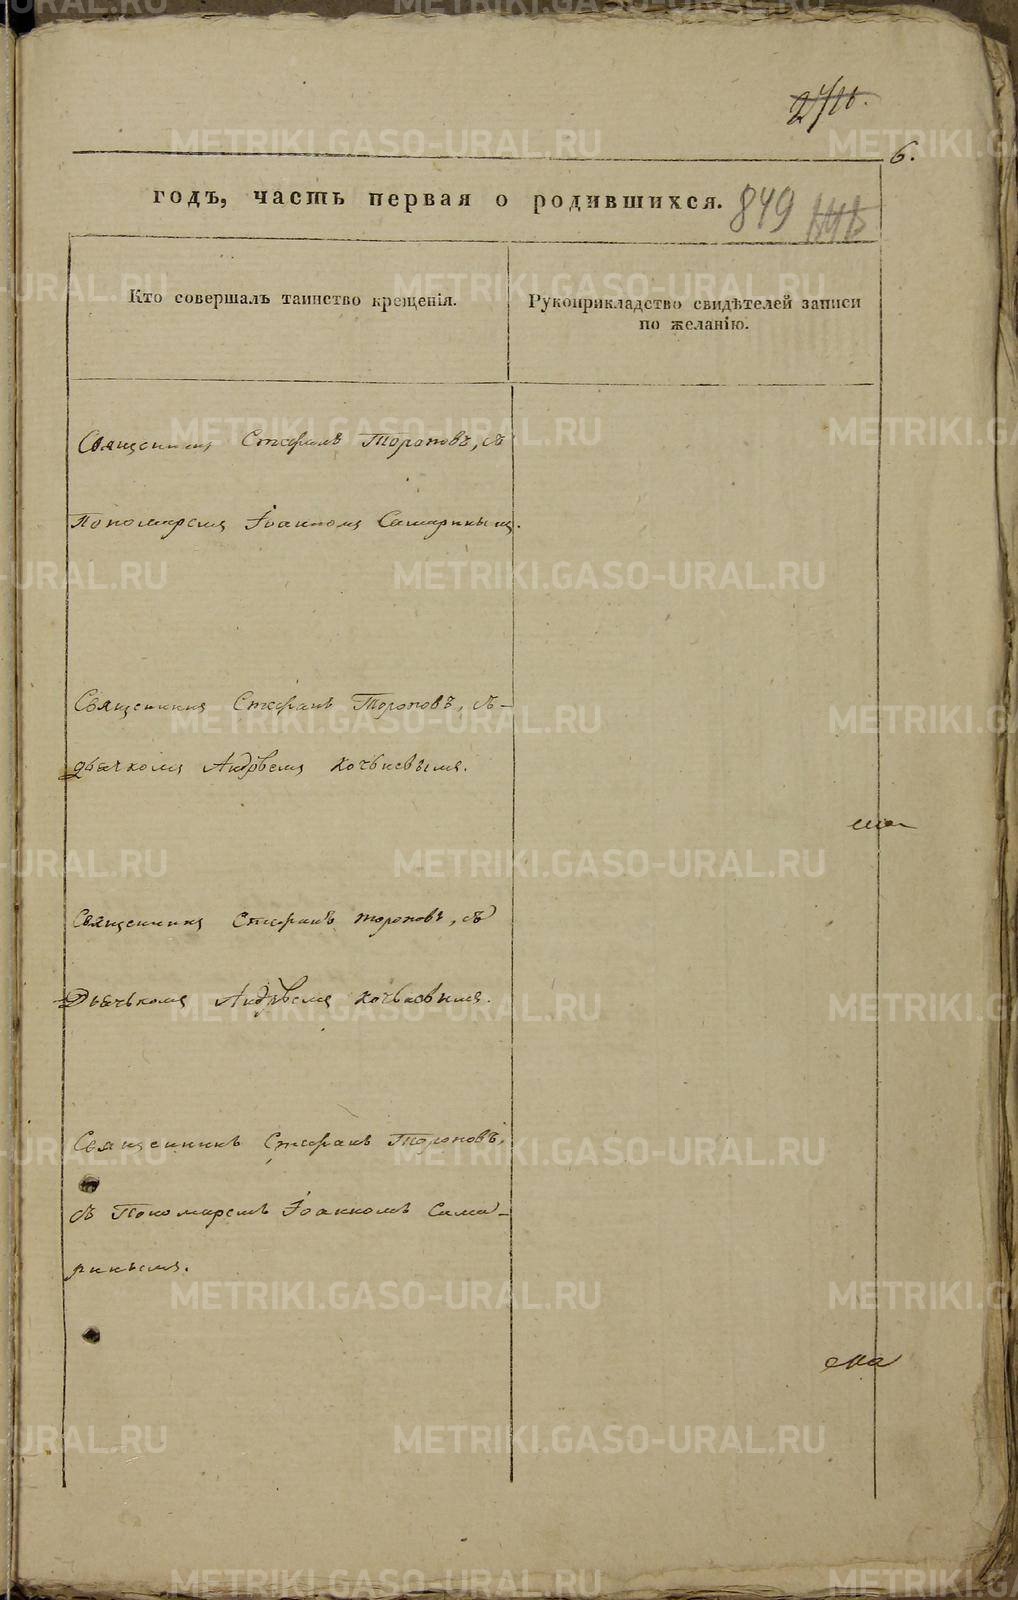 6.
годъ, часть первая о родившихся. 849
Кто совершалъ таинство крещенія.
Рукоприкладство свидѣтелей записи
по желанію.
Священникъ Стефанъ Тороповъ, съ
Пономаремъ Іоанномъ Самаринымъ.
Священникъ Стефанъ Тороповъ, съ
дьячкомъ Андрѣемъ Кочневымъ.
Священникъ Стефанъ Тороповъ, съ
Дьячькомъ Андрѣемъ Кочневымъ.
Священникъ Стефанъ Тороповъ,
съ Пономаремъ Іоанномъ Сама-
ринымъ.
METRIKI.GASO-URAL.RU